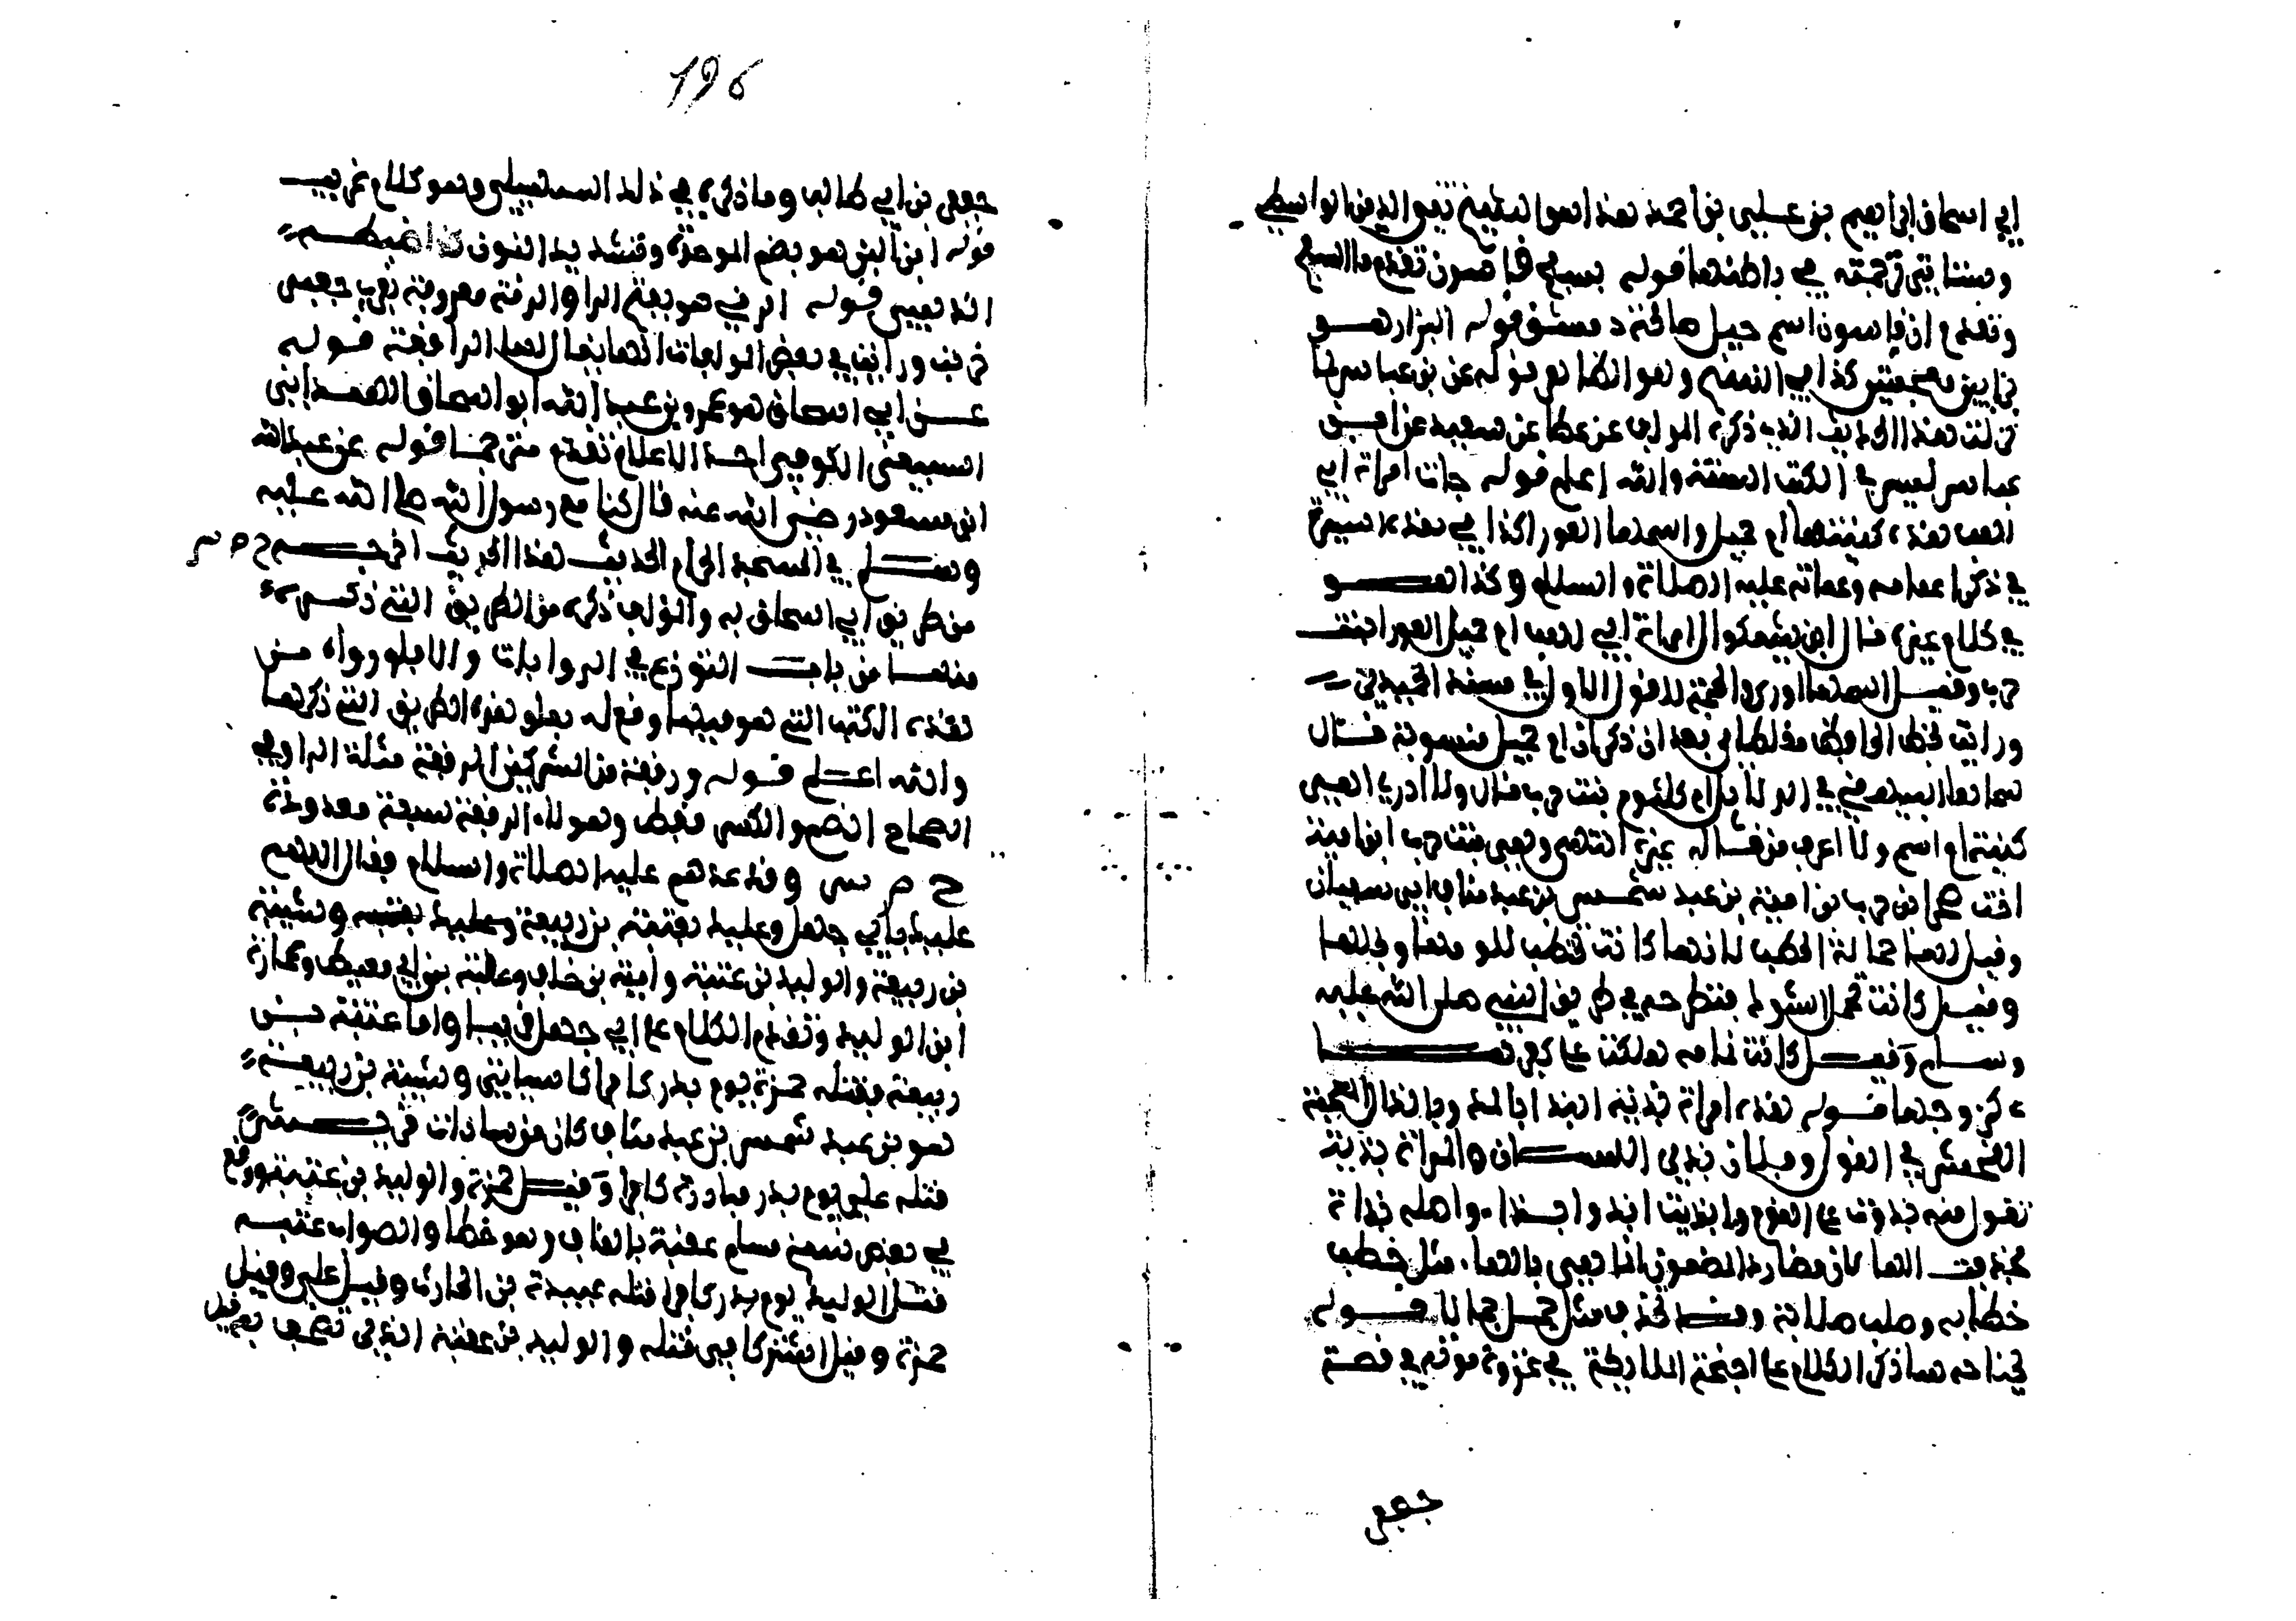 ابي اسحاق ابراهيم بن علي بن احمد هذا هو ابن تقي الدين الواسطي
وستاتي ترجمته في قوله بسفح قاسيون تقدم ما السفح
وتقدم ان قاسيون اسم جبل صالحية دمشق قوله البزار هو
براي بعد كذا في النسخة وهو الظاهر قوله عن بن عباس رضي
قلت هذا الحديث الذي ذكره المولف عن عطا عن سعيد عن ابن
عباس ليس في الكتب الستة والله اعلم قوله جات امراة ابي
لهب هذه كنيتها ام جميل واسمها العورا كذا في هذه السيرة
في ذكر اعمامه وعماته عليه الصلاة والسلام وكذا هو
في كلام غيره قال ابن بشكوال امراة ابي لهب ام جميل العورا بنت
حرب وقيل اسمها اروى والحجة للقول الاول في مسند الحميدي
ورايت بخط مغلطاي بعد ان ذكر ان ام جميل منسوبة قال
سماها البيهقي في الدلايل ام كلثوم بنت حرب قال ولا ادري اهي
كنية ام اسم ولا اعرف من قاله غيره انتهى وهي بنت حرب ابن امية
اخت صخر بن حرب بن امية بن عبد شمس بن عبد مناف ابي سفيان
وقيل لها حمالة الحطب لانها كانت تحطب للومها وبخلها
وقيل كانت تحمل الشوك فتطرحه في طريق النبي صلى الله عليه
وسلم وقيل كانت نمامه هلكت على كفرها
كزوجها قوله هذه امراة بذية البذا بالمد وبالذال المعجمة
الفحش في القول وفلان بذي اللسان والمراة بذية
تقول منه بذوت على القوم وابذيت ابذوا بذا واصله بذاة
فحذفت الها لان مصادر المضموم انما هي بالها مثل خطب
خطابه وصلب صلابة وقد تحذف مثل جمل جمالا قوله
بجناحه ساذكر الكلام على اجنحة الملايكة في غزوة موته في قصة
جعفر
196
جعفر بن ابي طالب وما ذكره في ذلك السهيلي وهو كلام غريب
قوله ابن البن هو بضم الموحدة وتشديد النون كذا ضبطه
الذهبي قوله الرقي هو بفتح الرا والرقة معروفة بقرب جعبر
خربت ورايت في بعض المولفات انها يقال لها الرافقة قوله
عن ابي اسحاق هو عمرو بن عبد الله ابو اسحاق الهمداني
السبيعي الكوفي احد الاعلام تقدم مترجما قوله عن عبد الله
ابن مسعود رضي الله عنه قال كنا مع رسول الله صلى الله عليه
وسلم في المسجد الحرام الحديث هذا الحديث اخرجه خ م س
من طريق ابي اسحاق به والمولف ذكره من الطريق التي ذكره
منها من باب التنوع في الروايات والا فلو رواه من
هذه الكتب التي هو فيها وقع له بعلو هذه الطريق التي ذكرها
والله اعلم قوله ورفقة من المشركين الرفقة مثلثة الرا وفي
الصحاح الضم والكسر فقط وهولاء الرفقة سبعة معدودة
خ م س وقد عدهم عليه الصلاة والسلام فقال اللهم
عليك بابي جهل وعليك بعتبة بن ربيعة وشيبة
بن ربيعة والوليد بن عتبة وامية بن خلف وعقبة بن ابي معيط وعمارة
ابن الوليد وتقدم الكلام على ابي جهل قريبا واما عتبة بن
ربيعة فقتله حمزة يوم بدر كافرا كما سياتي وشيبة بن ربيعة
هو بن عبد شمس بن عبد مناف كان من سادات قريش
قتله علي يوم بدر مبارزة كافرا وقيل حمزة والوليد بن عتبة ووقع
في بعض نسخ مسلم عقبة بالقاف وهو خطا والصواب عتبة
قتل الوليد يوم بدر كافرا قتله عبيدة بن الحارث وقيل علي وقيل
حمزة وقيل اشتركا في قتله والوليد بن عقبة الذي